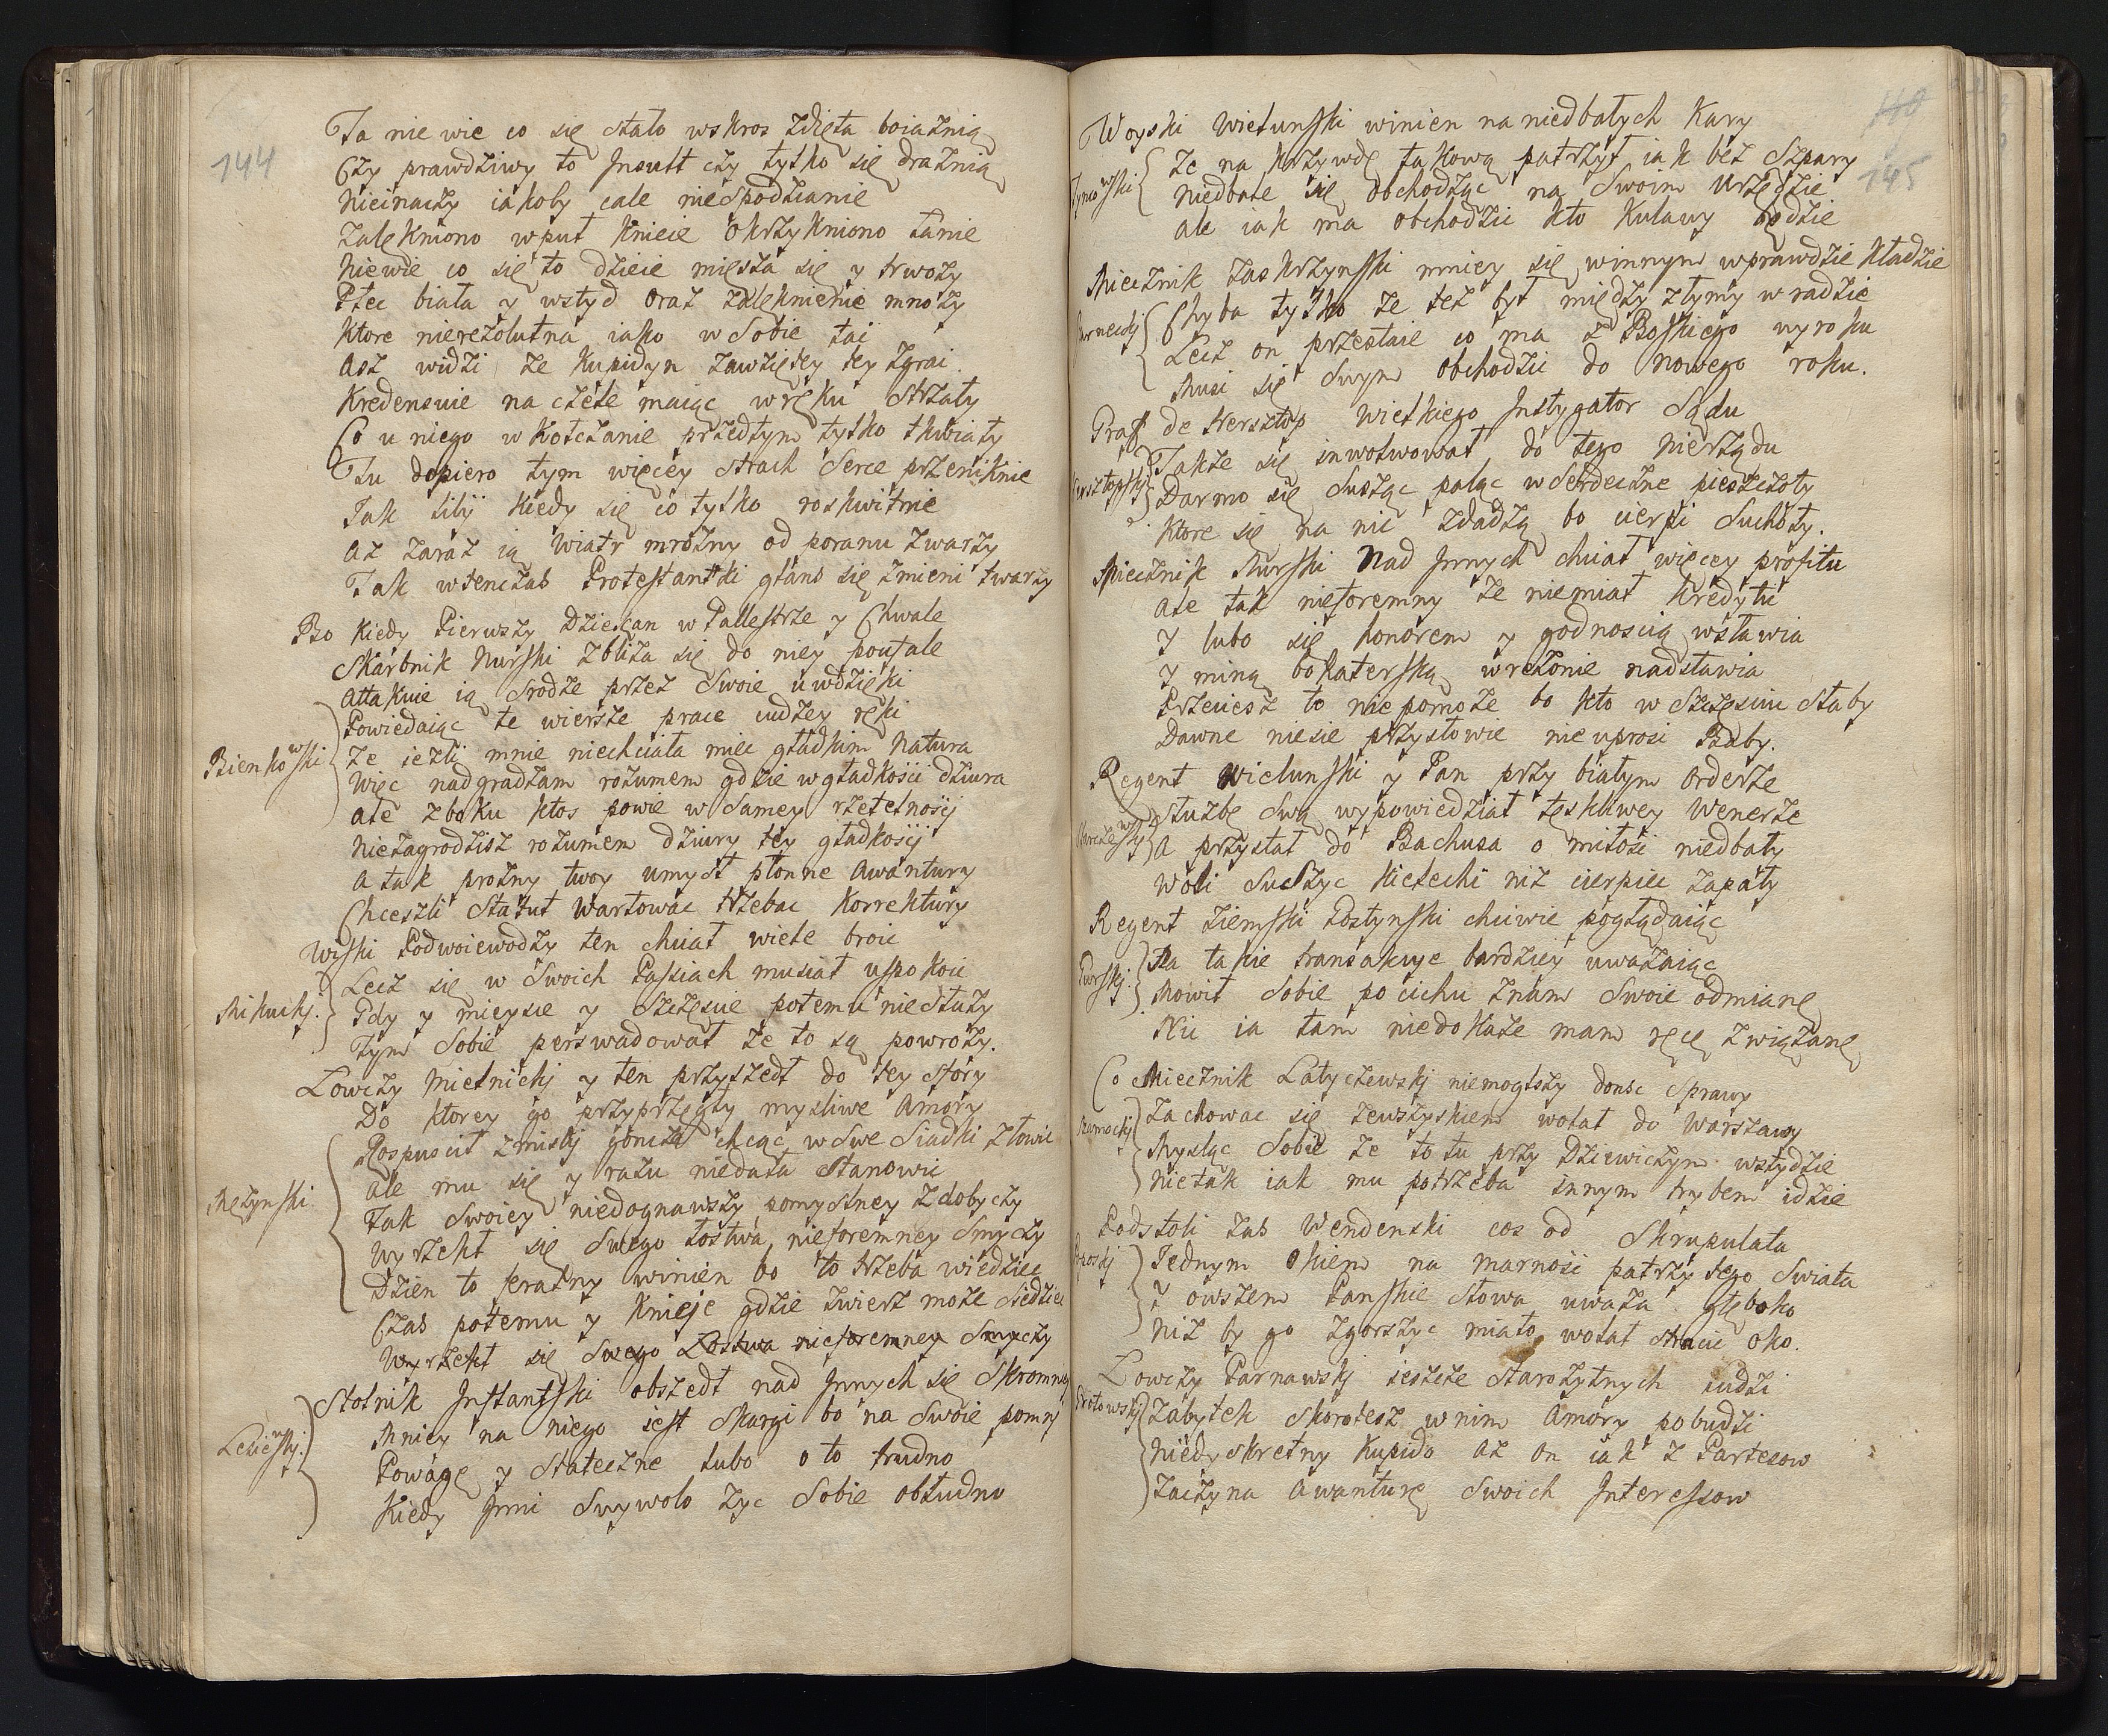 144
Ta nie wie co się stało wskros zdięta boiaznią
Czy prawdziwy to Insult czy tylko się draznią
Nieinaczy iakoby cale niespodzianie
Zalękniono wput Kniei okrzykniono Łanie
Niewie co się to dzieie miesza się y trwoży
Płeć biała y wstyd oraz zalęknienie mnoży
Ktore nierezolutna iako w Sobie tai
Asz widzi że Kupidyn zawziętey tey zgrai
Kredensuie na czele maiąc w ręku Strzały
Co u niego w Kołczanie przedtym tylko tkwiały
Tu dopiero tym więcey strach Serce przeniknie
Jak lilij kiedy się co tylko roskwitnie
Az zaraz ią Wiatr mrozny od poranu zwarzy
Tak wtenczas Protestantki glans się zmieni twarzy
Bo kiedy Pierwszy Dziekan w Pallestrze y Chwale
Skarbnik Nurski zbliza się do niey poufale
Attakuie ią srodze przez Swoie uwdzięki
Powiedaiąc te wiersze prace cudzey ręki
Bienkowski Ze iezli mnie niechciała miec gładkim Natura
Więc nadgradzam rozumem gdzie w gładkości dziura
ale z boku ktos powie w Samey rzetelnosij
Niezagrodzisz rozumem dziury tey gładkosij
A tak prozny twoy umysł płonne Awantury
Chceszli Statut Wartowac trzebac Korrektury
Wiski Podwoiewodzy ten chciał wiele broic
Lecz się w Swoich Passiach musiał uspokoic
Mikuckj. Gdy y mieysce y szczęscie potemu nie służy
Tym Sobie perswadował że to są powroży.
Łowczy Mielnickj y ten przyszedł do tey sfory
Do ktorey go przyprzęgły mysliwe Amory
Rospuscił zmisłj goncze chcąc w Swe Siadki złowic
Ale mu się y razu niedała Stanowic
Mężynski. Tak Swoiey niedognawszy pomyslney Zdobyczy
Wyrzekł się Swego łostwa nieforemney Smyczy
Dzien to feralny winien bo to trzeba wiedziec
Czas potemu y Knieje gdzie zwierz może siedziec
Wyrzekł się Swego Łostwa nieforemney Smyczy
Stolnik Inflantski obszedł nad Innych się Skromniey
Mniey na niego iest Skargi bo na Swoie pomny
Powagę y Stateczne lubo o to trudno
Kiedy Inni Swywolo żyć Sobie obłudno
140
145
Woyski Wielunski winien na niedbałych Kary
Ze na krzywdę takową patrzył iak bez Szpary
Niedbale się obchodząc na Swoim Urzędzie
ale iak ma obchodzic kto Kulawy będzie
Miecznik Zaskrzynski mniey się winnym wprawdzie kładzie
Chyba tylko że tez był między złymi w radzie
Lecz on przestaie co ma z Boskiego wyroku
Musi się Swym obchodzic do Nowego roku.
Graff de Hersztop Wielkiego Instygator Sądu
Takze się inwolwował do tego nierządu
Darmo się Susząc paląc w Serdeczne pieszczoty
Ktore się na nic zdadzą bo cierpi Suchoty.
Miecznik Nurski Nad Innych chciał więcey profitu
Ale tak nieforemny że niemiał Kredytu
Y lubo się honorem y godnoscią wsławia
Y miną bohaterską w rezonie nadstawia
Przeciesz to nie pomoże bo kto w Szczęsciu słaby
Dawne niesie przysłowie nie uprosi Baby.
Regent Wielunski y Pan przy białym Orderze
Służbę Swą wypowiedział teskliwey Wenerze
A przystał do Bachusa o miłość niedbały
Woli Suszyc Kielechi niż cierpiec zapały
Regent Ziemski Gostynski chciwie poglądaiąc
Na takie transakcye bardziey uważaiąc
Mowił Sobie po cichu znam Swoie odmianę
Nic ia tam niedokaze mam ręce związane
Co Miecznik Latyczewskj niemogłszy donsc Sprawy
Zachowac się zewszyskiem wolał do Warszawy
Mysląc Sobie że to tu przy Dziewiczym wstydzie
Nietak iak mu potrzeba innym trybem idzie
Podstoli zas Wendenski cos od Skrupulata
Jednym okiem na marnosi patrzy tego Swiata
Y owszem Panskie Słowa uwaza głęboko
Niż by go zgorszyc miało wolał stracic oko.
Łowczy Parnawskj ieszcze starozytnych ludzi
Zabytek skorotesz w nim Amory pobudzi
Niedyskretny Kupido az on iak z Partesow
Zaczyna Awanturę Swoich Interessow